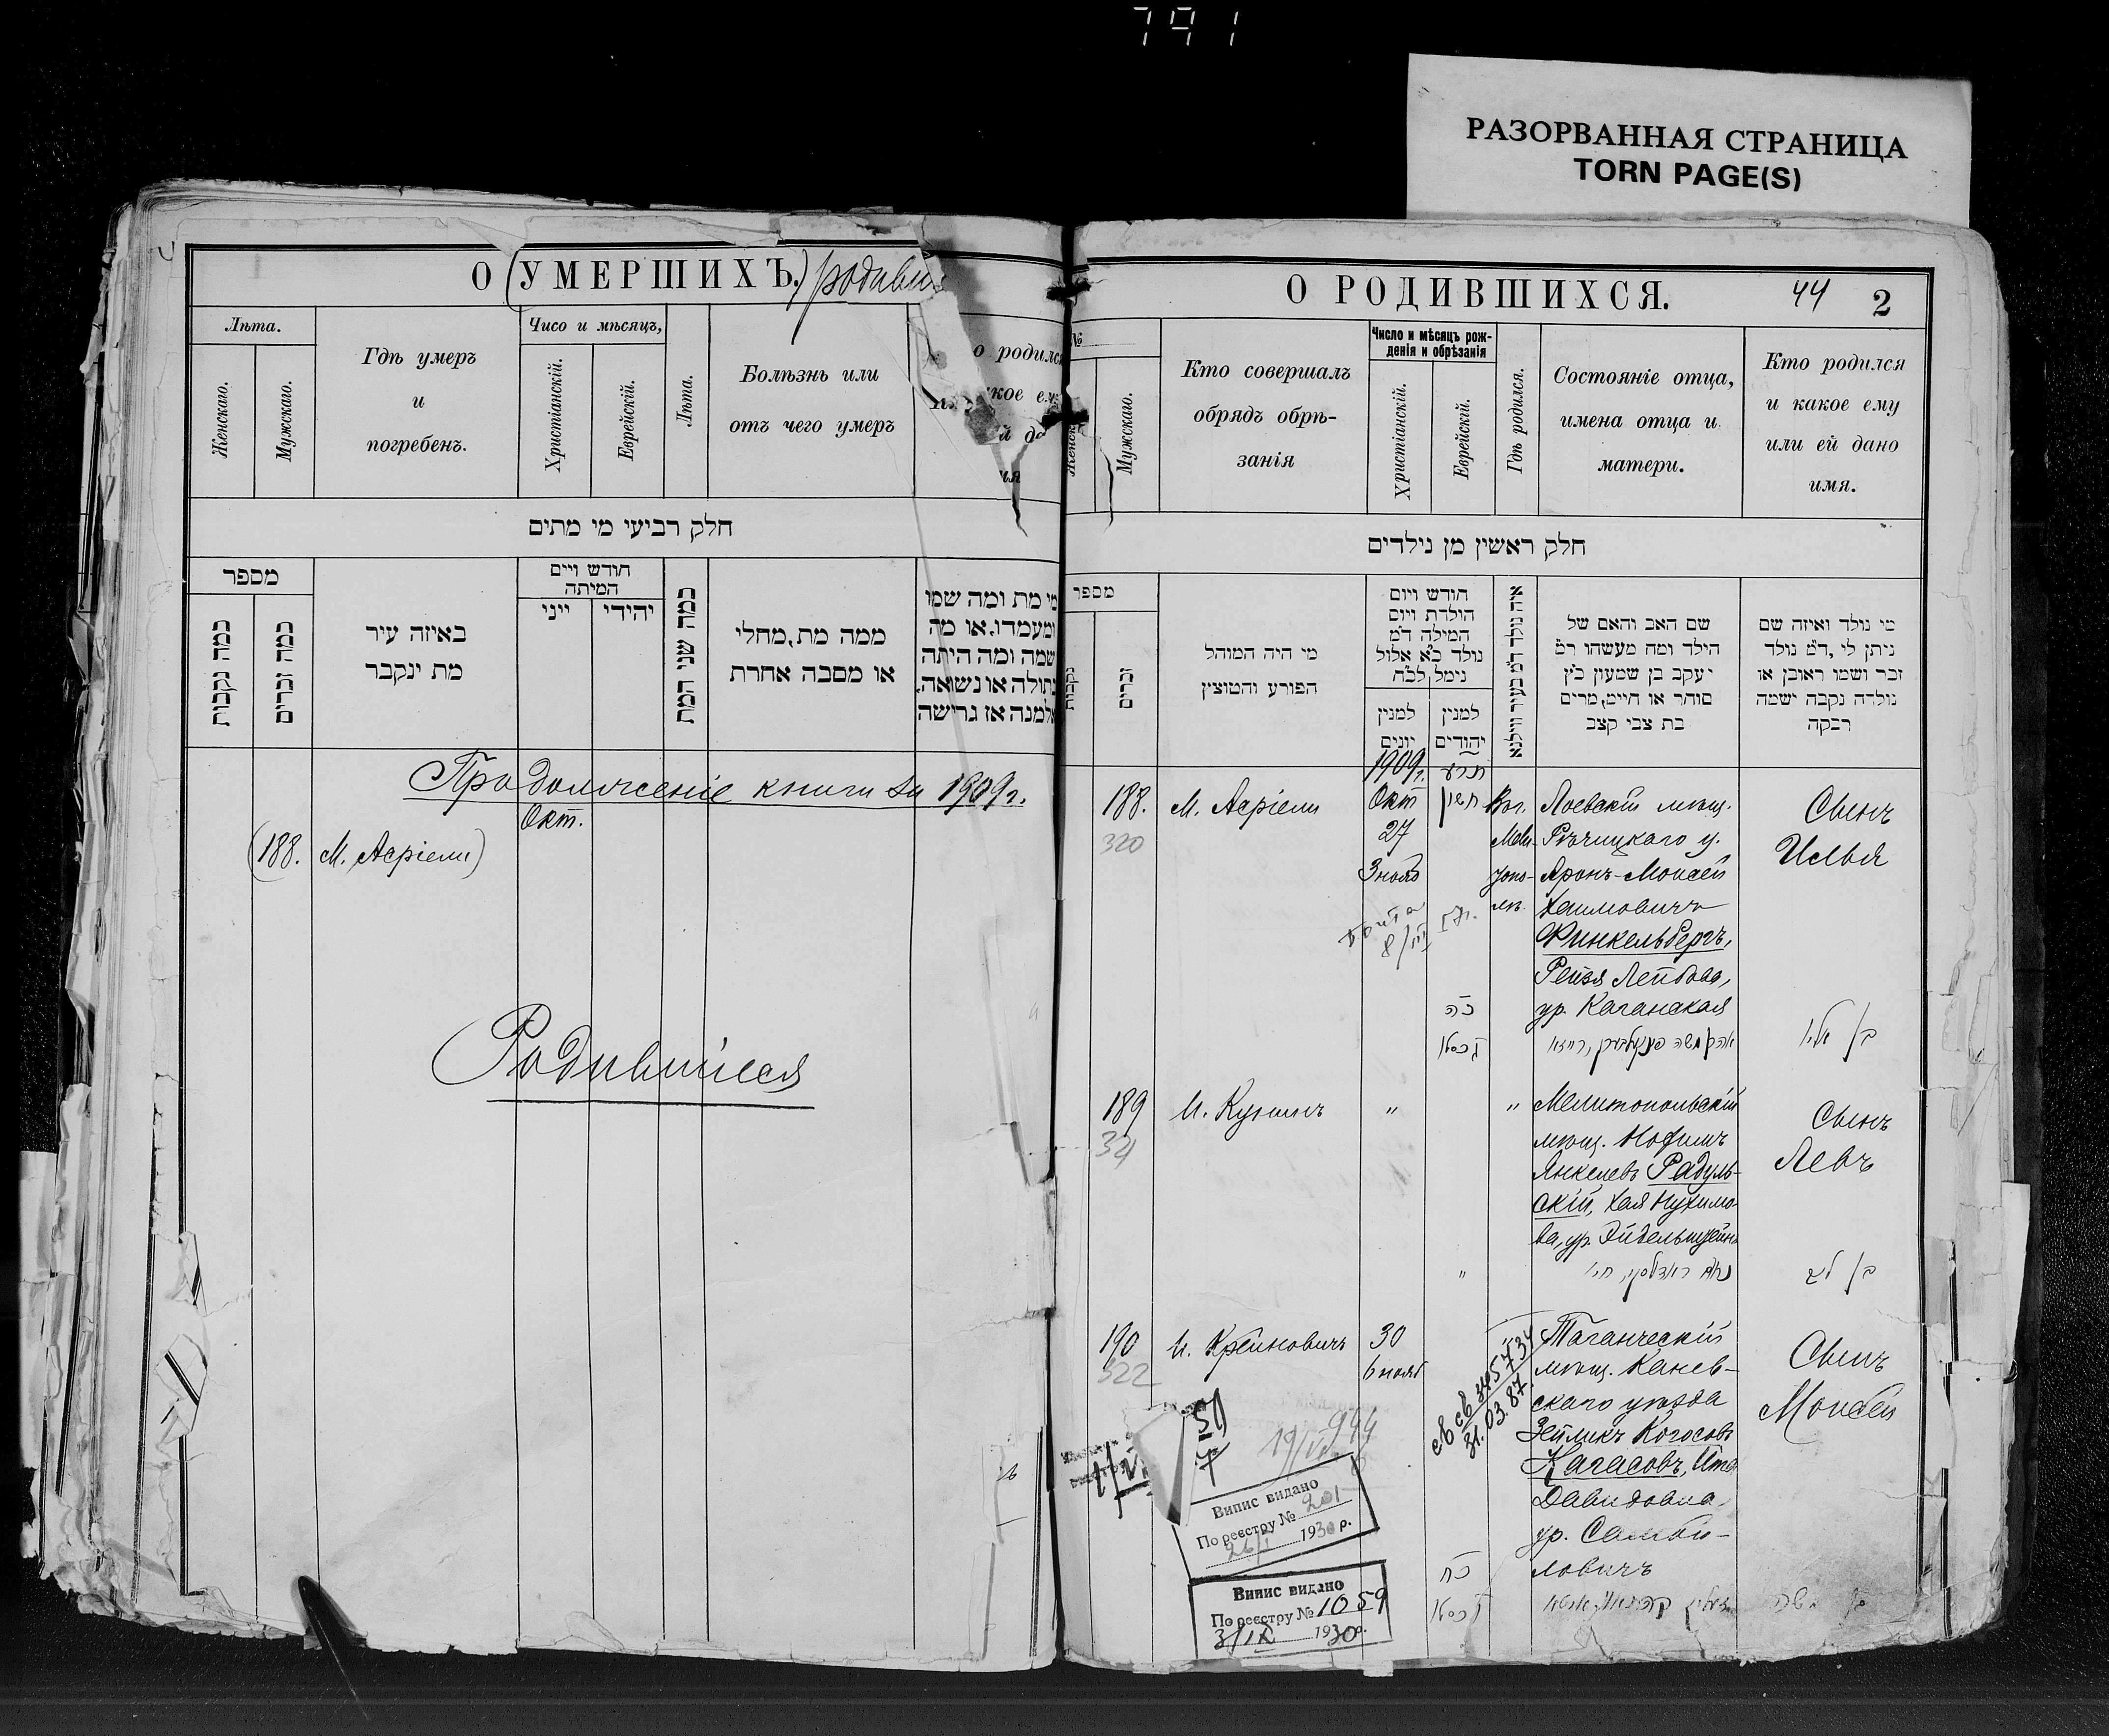 791
РАЗОРВАННАЯ СТРАНИЦА
TORN PAGE(S)
О (УМЕРШИХЪ.)
Лѣта.
Женскаго.
Мужскаго.
Гдѣ умеръ
и
погребенъ.
Чисо и мѣсяцъ,
Христіанскій.
Еврейскій.
Лѣта.
Болѣзнь или
отъ чего умеръ
חלק רביעי מי מתים
מספר
כמה נקבות
כמה זכרים
באיזה עיר
מת ינקבר
חודש ויים
המיתה
ייני
יהידי
כמה שני המת
ממה מת, מחלי
או מסבה אחרת
מי מת ומה שמו
ומעמדו, או מה
שמה ומה היתה
בתולה או נשואה,
אלמנה אז גרישה
Продолженіе книги за 1909 г.
Окт.
(188. М. Асріели)
Родившіеся
О РОДИВШИХСЯ.
44
2
№
Женск
Мужскаго.
Кто совершалъ
обрядъ обрѣ-
занія
Число и мѣсяцъ рож-
денія и обрѣзанія
Христіанскій.
Еврейскій.
Гдѣ родился.
Состояніе отца,
имена отца и
матери.
Кто родился
и какое ему
или ей дано
имя.
חלק ראשין מן נילדים
מספר
נקבות
זכרים
מי היה המוהל
הפורע והטוצין
חודש ויום
הולדת ויום
המילה ד״מ
נולד כ״א אלול
נימל, לכ״ח
למנין
יונים
למנין
יהודים
איה נולד ד״מ בעיר ווילנא
שם האב והאם של
הילד ומה מעשהו ד״מ
יעקב בן שמעון כ״ץ
סוהר או חייט, מרים
בת צבי קצב
מי נולד ואיזה שם
ניתן לי, ד״מ נולד
זכר ושמו ראובן או
נולדה נקבה ישמה
רבקה
1909 г.
תרע
188.
320
М. Асріели
Окт
27
3 нояб
חשון
Мели-
топо-
лѣ.
Лоевскій мѣщ.
Рѣчицкаго у.
Аронъ-Моисей
Хаимовичъ
Финкельбергъ,
Рейзя Лейбова,
ур. Каганская
Сынъ
Илья
כה
189
И. Кушнъ
"
"
Мелитопольскій
мѣщ. Нофимъ
Янкелевъ Радуль-
скій, Хая Нухимо-
ва, ур. Эйдельштейнъ
Сынъ
Левъ
"
190
322
И. Крейновичъ
30
6 нояб
Таганческій
мѣщ. Канев-
скаго уѣзда
Зейликъ Когосовъ
Кагасовъ, Ита
Давидовна,
ур. Самби-
ловичъ
Сынъ
Моисей
כח
31.03.87.
Випис видано
По реєстру № 201
26/I 1930 р.
Випис видано
По реєстру № 1059
3/IX 1930 р.